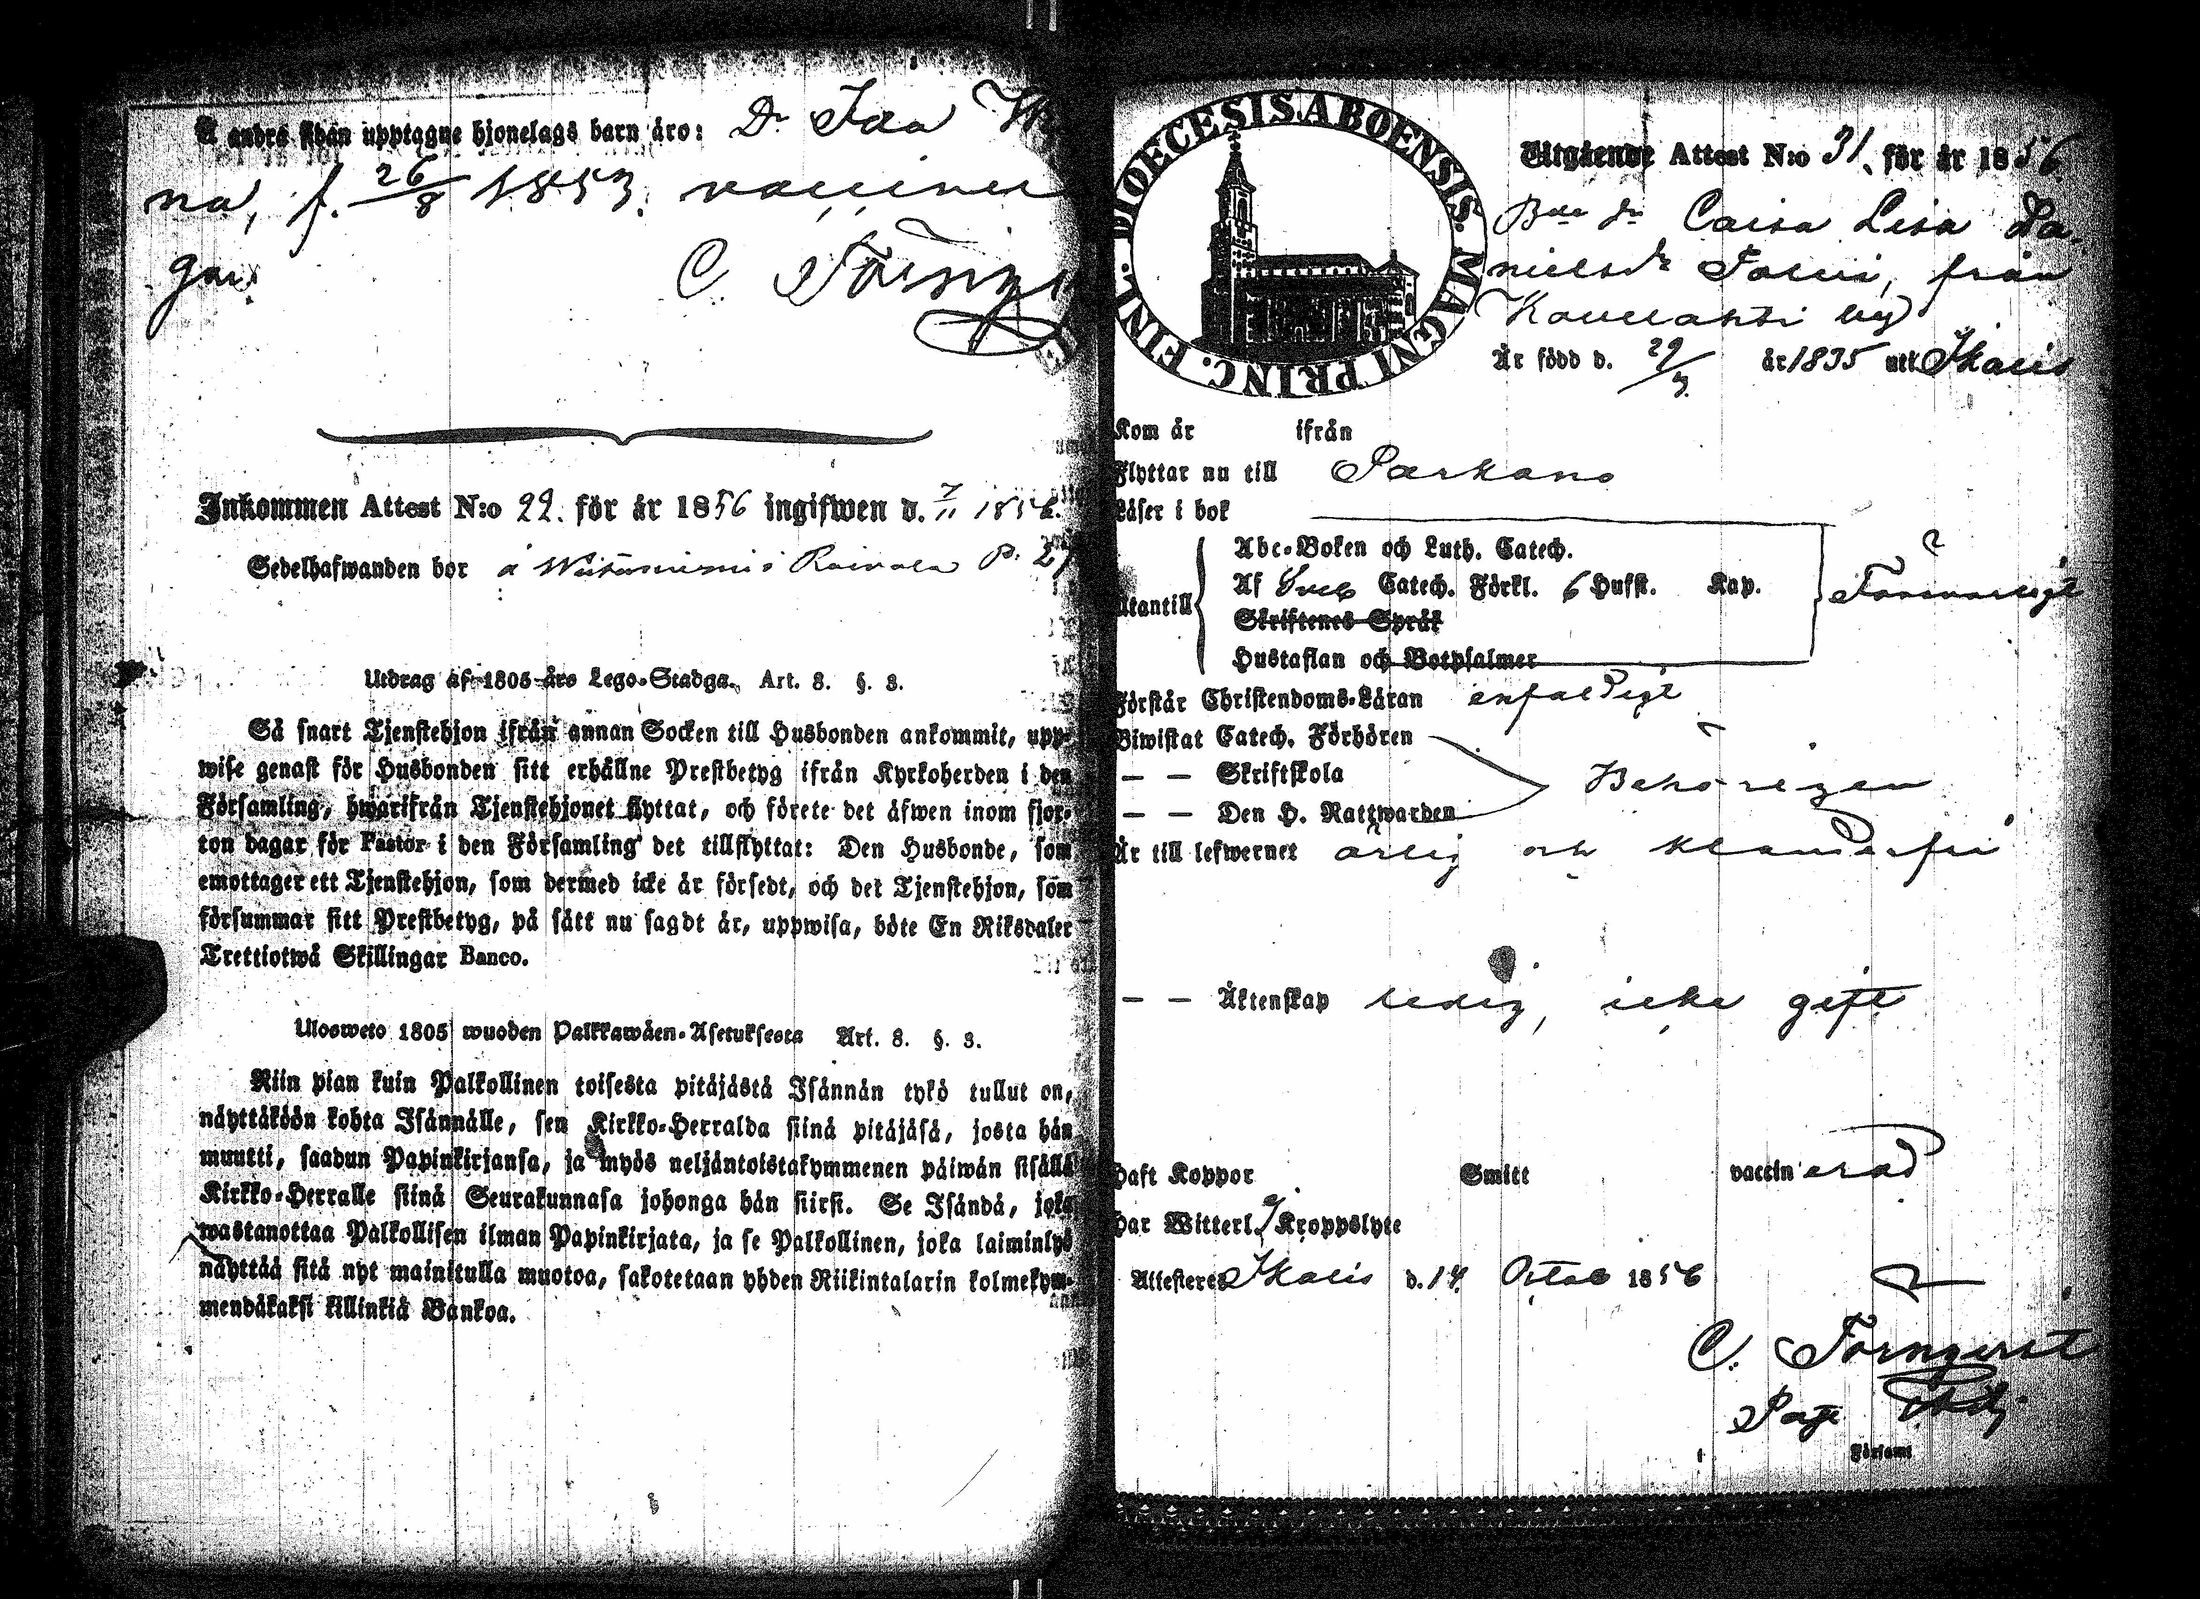 å andra sidan upptagne hjonelags barn äro: Dr Ida
na, f. 26/8 1853. vaccine
C. Törnq
Inkommen Attest N:o 22. för år 1856 ingifwen d. 7/11 1856.
Sedelhafwanden bor å Raivala p. 27
Utdrag af 1805 års Lego-Stadga. Art. 8. §. 3.
Så snart Tjenstehjon ifrån annan Socken till Husbonden ankommit, upp-
wise genast för Husbonden sitt erhållne Prestbetyg ifrån Kyrkoherden i den
Församling, hwarifrån Tjenstehjonet flyttat, och förete det äfwen inom fjor-
ton dagar för Pastor i den Församling det tillflyttat: Den Husbonde, som
emottager ett Tjenstehjon, som dermed icke är försedt, och det Tjenstehjon, som
försummar sitt Prestbetyg, på sätt nu sagdt är, uppwisa, böte En Riksdaler
Trettiotwå Skillingar Banco.
Ulosweto 1805 wuoden Palkkawäen-Asetuksesta Art. 8. §. 3.
Niin pian kuin Palkollinen toisesta pitäjästä Isännän tykö tullut on,
näyttäköön kohta Isännälle, sen Kirkko-Herralda siinä pitäjäsä, josta hän
muutti, saadun Papinkirjansa, ja myös neljäntoistakymmenen päiwän sisällä
Kirkko-Herralle siinä Seurakunnasa johonga hän siirsi. Se Isändä, joka
wastanottaa Palkollisen ilman Papinkirjata, ja se Palkollinen, joka laiminlyö
näyttää sitä nyt mainitulla muotoa, sakotetaan yhden Riikintalarin kolmekym-
mendäkaksi killinkiä Bankoa.
DIOECESIS ABOENSIS. MAGNI PRINC. FINL.
Utgående Attest N:o 31. för år 1856.
Caisa Lisa Da-
nielsdr från
by
Är född d. 29/3 år 1835 uti Ikalis
Kom år ifrån
Flyttar nu till Parkano
Läser i bok
Utantill
Abc-Boken och Luth. Catech.
Af Sveb Catech. Förkl. 6 Hufst. Kap.
Försvarligt
Skriftenes Språk
Hustaflan och Botpsalmer
Förstår Christendoms-Läran enfaldigt
Biwistat Catech. Förhören
— — Skriftskola Behörigen
— — Den H. Nattwarden
Är till lefwernet ärlig och klanderfri
— — Äktenskap ledig, icke gift
Haft Koppor Smitt vaccinerad
Har Witterl. Kroppslyte
Attesteres Ikalis d. 14. Octob 1856
C. Törnqvist
Past Adj
Församl